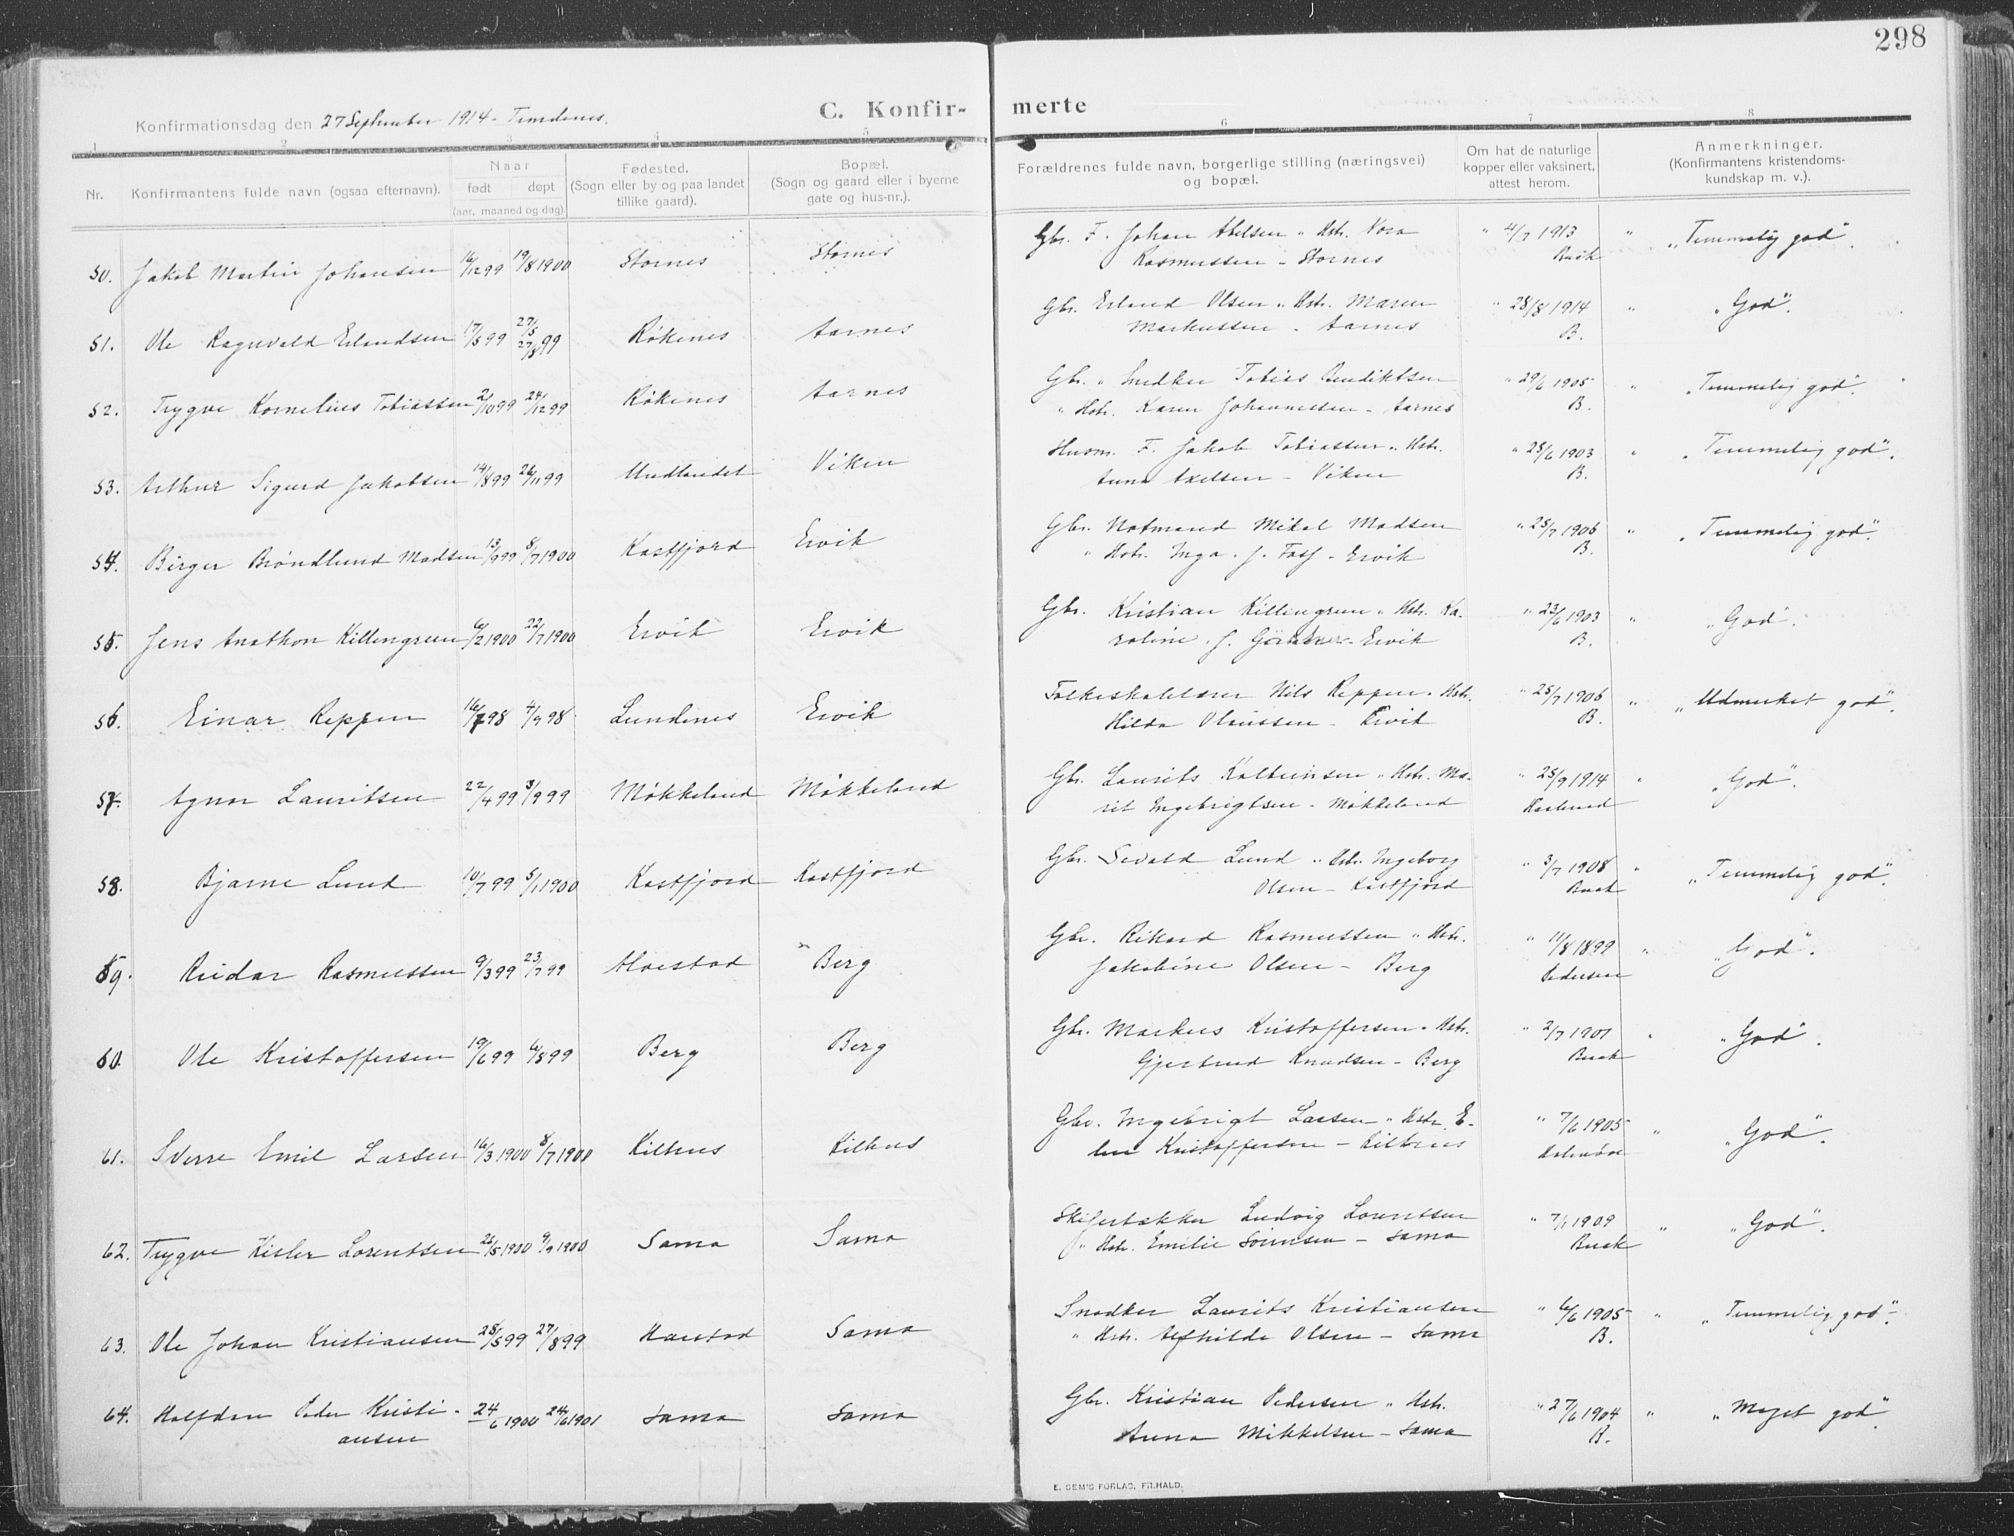 298
C. Konfir- merte
Konfirmationsdag den 27 September 1914 - Trondenes.
1 2 3 4 5 6 7 8
Nr.
Konfirmantens fulde navn (ogsaa efternavn).
Naar
født døpt
(aar, maaned og dag).
Fødested.
(Sogn eller by og paa landet
tillike gaard).
Bopæl.
(Sogn og gaard eller i byerne
gate og hus-nr.).
Forældrenes fulde navn, borgerlige stilling (næringsvei)
og bopæl.
Om hat de naturlige
kopper eller vaksinert,
attest herom.
Anmerkninger.
(Konfirmantens kristendoms-
kundskap m. v.).
50. Jakob Martin Johansen 16/12 99 19/8 1900 Stornes Stornes Gbr. F. Johan Abelsen " Hstr. Nora " 4/7 1913 " "Temmelig god".
Rasmussen - Stornes Buck
51. Ole Ragnvald Erlandsen 17/5 99 27/5 27/8 99 Røkenes Aarnes Gbr. Erland Olsen " Hstr. Maren " 28/8 1914 " "God".
Markussen - Aarnes B.
52. Trygve Kornelius Tobiassen 2/10 99 24/12 99 Røkenes Aarnes Gbr. " Snedker Tobias Bendiktsen " 29/6 1905 " "Temmelig god".
" Hstr. Karen Johannessen - Aarnes B.
53. Arthur Sigurd Jakobsen 14/8 99 26/11 99 Undlandet Viken Husm. F. Jakob Tobiassen " Hstr. " 25/6 1903 " "Temmelig god".
Anna Axelsen - Viken B.
54. Birger Brøndlund Madsen 13/9 99 8/7 1900 Kastfjord Ervik Gbr. Notmand Mikal Madsen " 25/7 1906 " "Temmelig god".
" Hstr. Inga. f. Foss - Ervik B.
55. Jens Anathon Killengreen 6/2 1900 22/7 1900 Ervik Ervik Gbr. Kristian Killengreen " Hstr. Ka- " 23/6 1903 " "God".
roline. f. - Ervik B.
56. Einar Reppen 16/7 98 4/9 98 Lundenes Ervik Folkeskolelærer Nils Reppen " Hstr. " 25/7 1906 " "Udmerket god".
Hilda Olaussen - Ervik B.
57. Agnar Lauritsen 22/4 99 3/9 99 Møkkeland Møkkeland Gbr. Laurits Kolbeinsen " Hstr. Ma- " 25/9 1914 " "God".
rit Ingebrigtsen - Møkkeland
58. Bjarne Lund 10/7 99 5/1 1900 Kastfjord Kastfjord Gbr. Sevald Lund " Hstr. Ingeborg " 3/7 1908 " "Temmelig god".
Olsen - Kastfjord Buck
59. Reidar Rasmussen 9/3 99 23/7 99 Harstad Berg Gbr. Rikard Rasmussen " Hstr. " 11/8 1899 " "God".
Jakobine Olsen - Berg Pedersen
60. Ole Kristoffersen 19/6 99 6/8 99 Berg Berg Gbr. Markus Kristoffersen " Hstr. " 2/7 1907 " "God".
Gjertrud Knudsen - Berg Buck
61. Sverre Emil Larsen 16/3 1900 8/7 1900 Kilhus Kilhus Gbr. Ingebrigt Larsen " Hstr. E- " 7/6 1905 " "God".
len Kristoffersen - Kilhus
62. Trygve Kisler Lorentsen 26/5 1900 9/9 1900 Sama Sama Skifertækker Ludvig Lorentsen " 7/1 1909 " "God".
" Hstr. Emilie Sørensen - Sama Buck
63. Ole Johan Kristiansen 28/5 99 27/8 99 Harstad Sama Snedker Laurits Kristiansen " 6/6 1905 " "Temmelig god".
" Hstr. Alfhilde Olsen - Sama B.
64. Halfdan Peder Kristi- 24/6 1900 24/6 1901 Sama Sama Gbr. Kristian Pedersen " Hstr. " 27/6 1904 " "Meget god".
ansen Anna Mikkelsen - Sama B.
E. SEM'S FORLAG, FR.HALD.